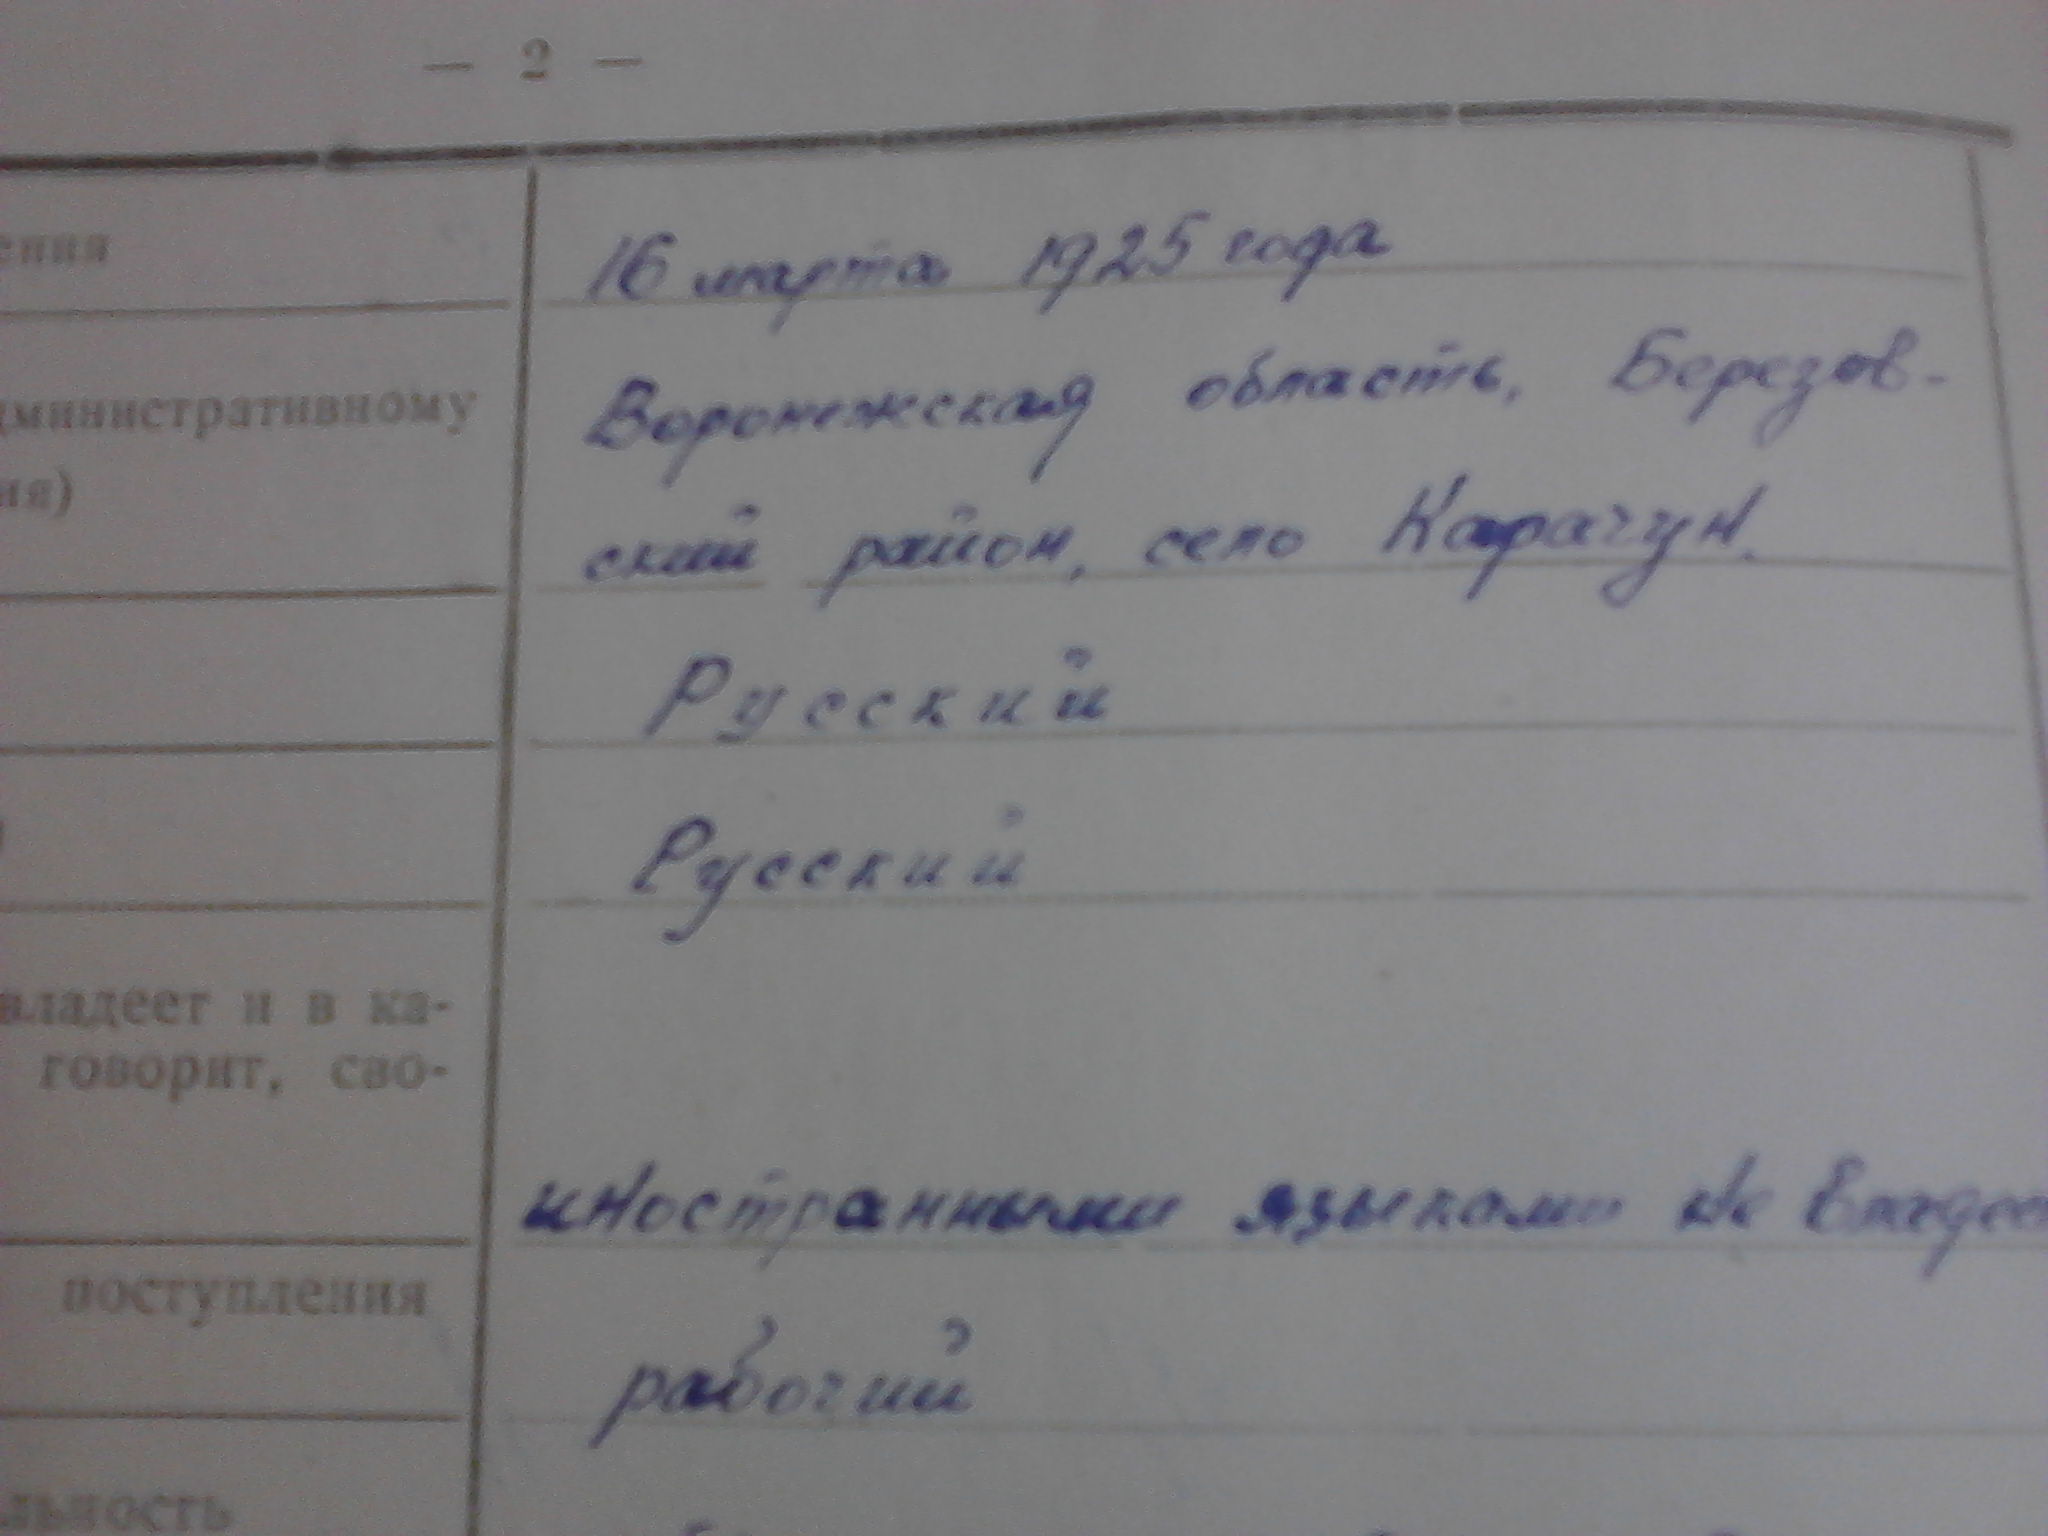 — 2 —
ения
16 марта 1925 года
дминистративному
ия)
Воронежская область, Березов-
ский район, село Карачун.
Русский
Русский
владеет и в ка-
говорит, сво-
иностранными языками не владеет
поступления
рабочий
льность